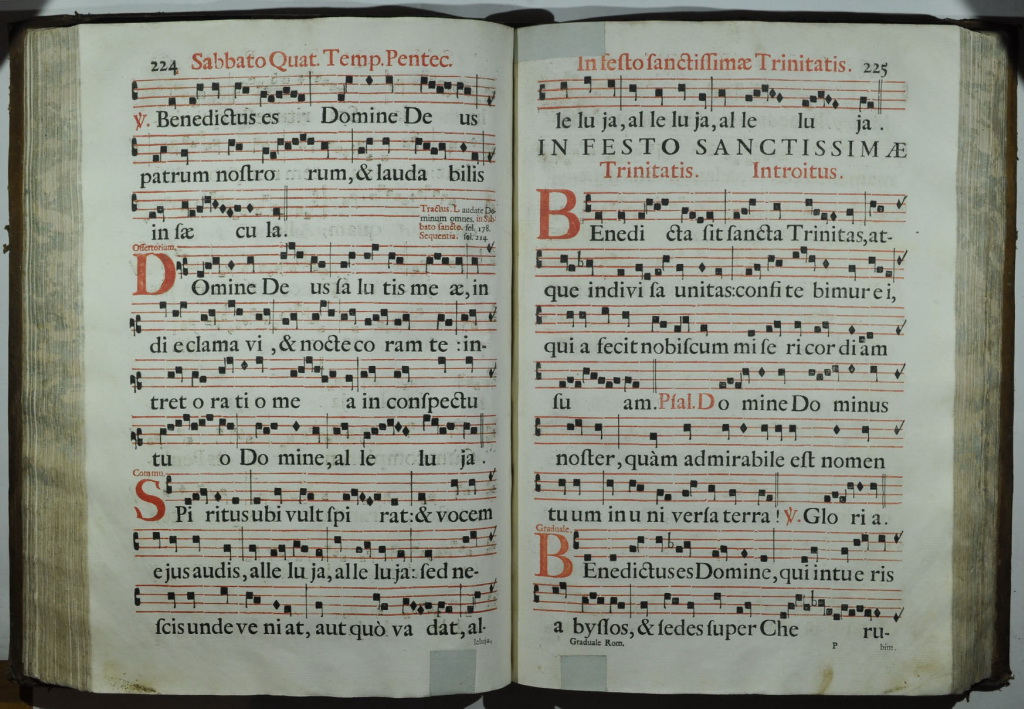 224 Sabbato Quat. Temp. Pentec.
℣. Benedictus es Domine De us
patrum nostro rum, & lauda bilis
in sæ cu la.
Tractus. L audate Do
minum omnes. in Sab
bato sancto. fol. 178.
Sequentia. fol. 214.
Offertorium.
D Omine De us sa lu tis me æ, in
di e clama vi , & nocte co ram te : in-
tret o ra ti o me a in conspectu
tu o Do mine, al le lu ja .
Commu.
S Pi ritus ubi vult spi rat: & vocem
ejus audis, alle lu ja, al le lu ja: sed ne-
scis unde ve ni at, aut quò va dat, al-
leluja.
In festo sanctissimæ Trinitatis. 225
le lu ja, al le lu ja, al le lu ja .
IN FESTO SANCTISSIMÆ
Trinitatis. Introitus.
B Enedi cta sit sancta Trinitas, at-
que indivi sa unitas: confi te bimur e i,
qui a fecit nobiscum mi se ri cor di am
su am. Psal. D o mine Do minus
noster, quàm admirabile est nomen
tu um in u ni versa terra! ℣. Glo ri a.
Graduale.
B Enedictus es Domine, qui intue ris
a byssos, & sedes super Che ru-
Graduale Rom. P bim.